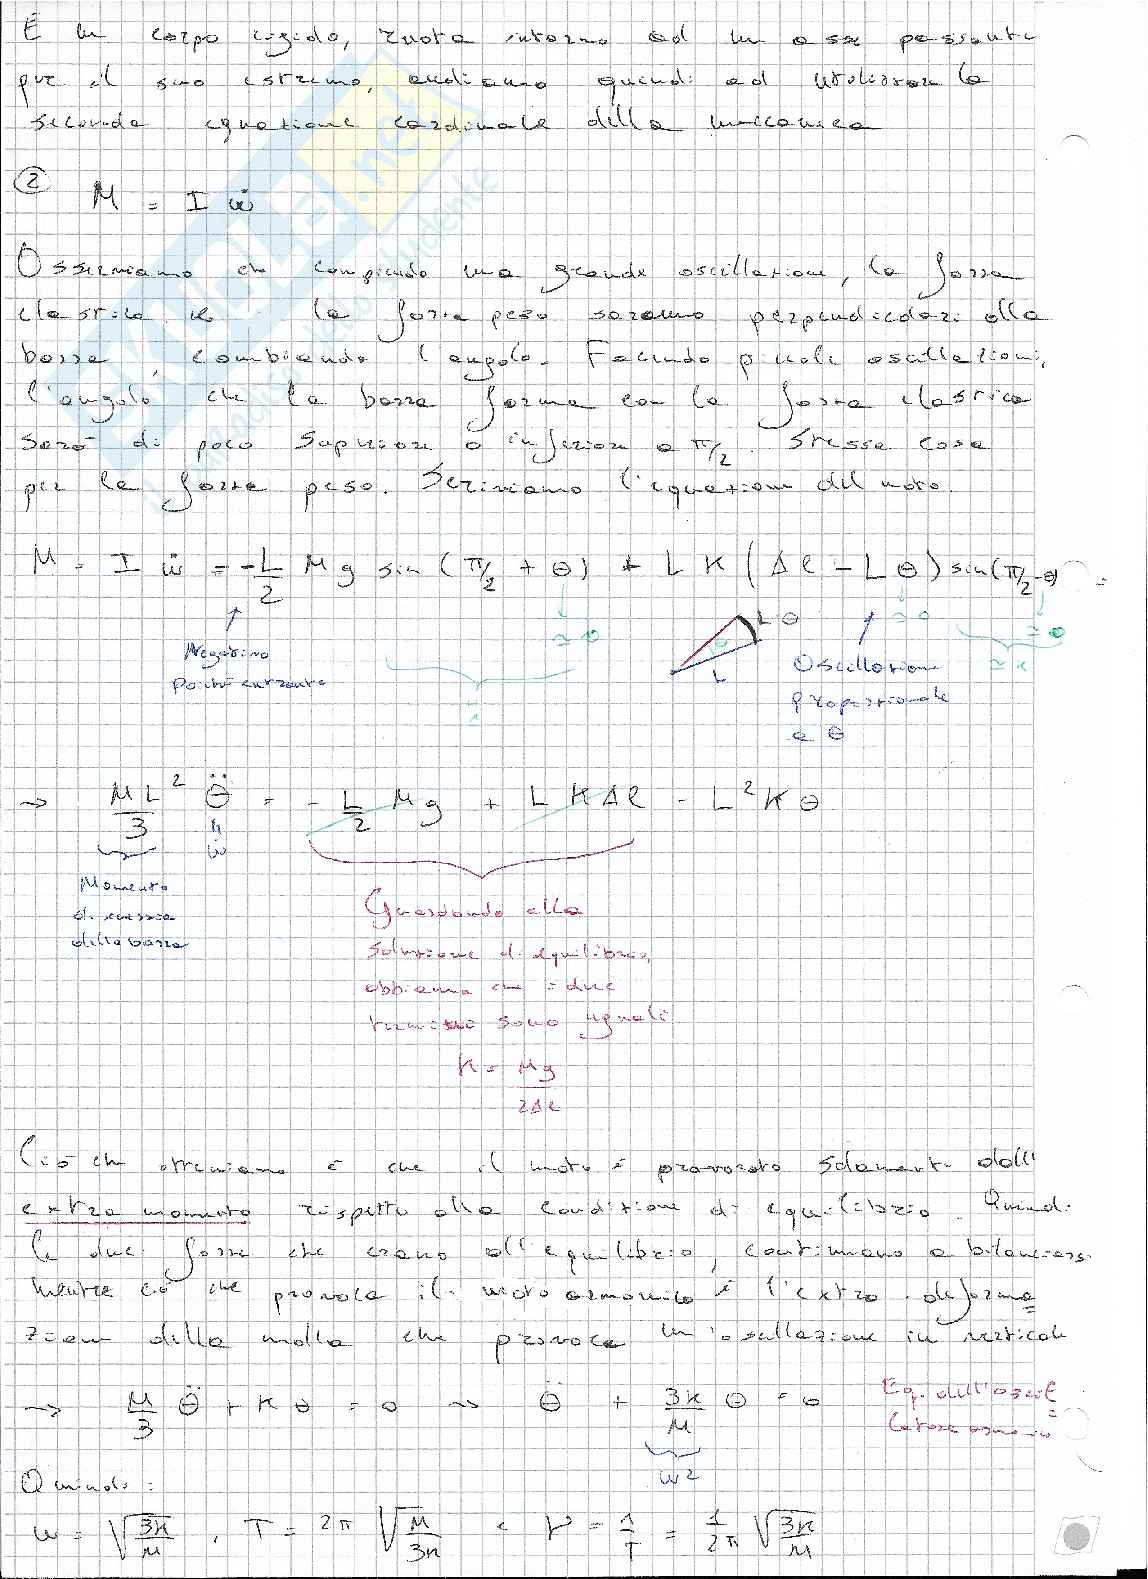 È un corpo rigido, ruota intorno ad un asse passante
per il suo estremo, andiamo quindi ad utilizzare la
seconda equazione cardinale della meccanica
② M = I ω̇
Osserviamo che compiendo una grande oscillazione, la forza
elastica e la forza peso saranno perpendicolari alla
barra, cambiando l'angolo. Facendo piccole oscillazioni,
l'angolo che la barra forma con la forza elastica
sarà di poco superiore o inferiore a π/2. Stessa cosa
per la forza peso. Scriviamo l'equazione del moto.
M = I ω̇ = -L/2 Mg sin(π/2 + θ) + L K (Δl - Lθ) sin(π/2 - θ) =
≃ 0 ≃ 0 ≃ 0
Negativo
poiché entrante
≃ 1
L θ
θ
L
Oscillazione
proporzionale
a θ
≃ 1
→ ML²/3 θ̈ = - L/2 Mg + L K Δl - L² K θ
ω̇
Momento
d'inerzia
della barra
Guardando alla
soluzione di equilibrio,
abbiamo che i due
termini sono uguali
K = Mg/2Δl
Ciò che otteniamo è che il moto è provocato solamente dall'
extra momento rispetto alla condizione di equilibrio. Quindi
le due forze che erano all'equilibrio, continuano a bilanciarsi
mentre ciò che provoca il moto armonico è l'extra deforma
zione della molla che provoca un'oscillazione in verticale
→ M/3 θ̈ + K θ = 0 ⇝ θ̈ + 3K/M θ = 0
Eq. dell'oscil
latore armonico
ω²
Quindi:
ω = √3K/M , T = 2π √M/3K e ν = 1/T = 1/2π √3K/M
SKUOLA.net
il paradiso dello studente